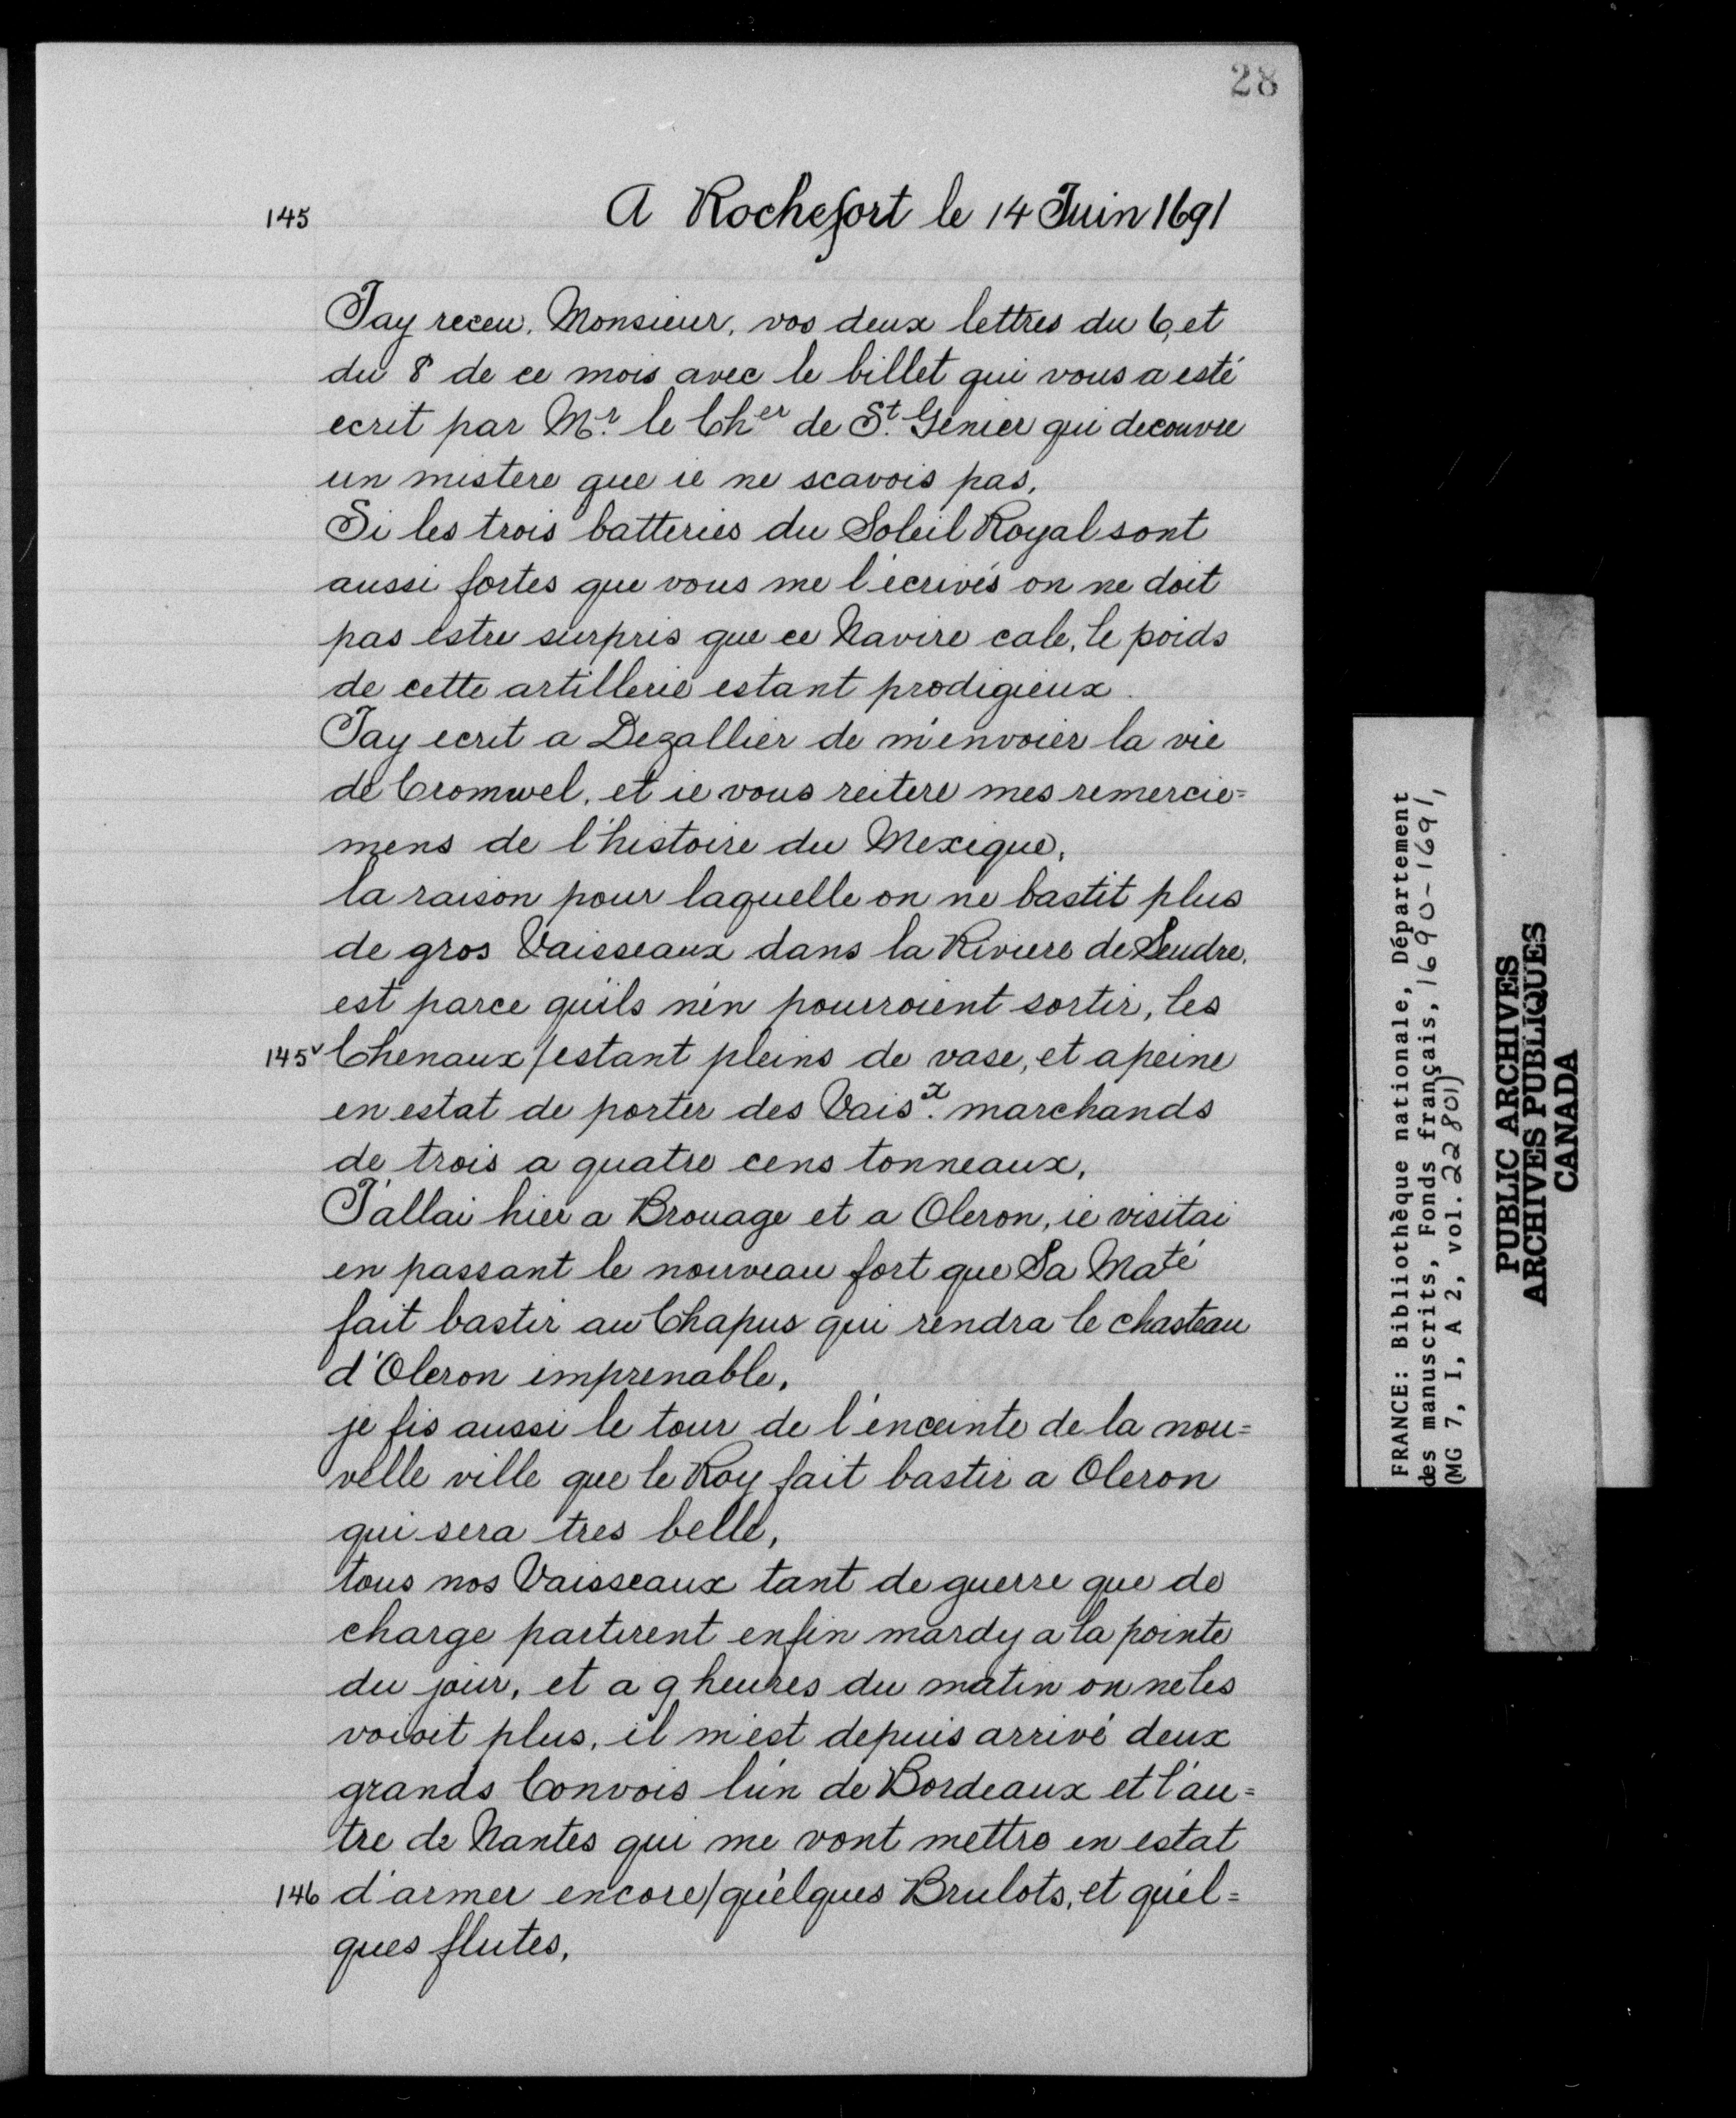 28
145 A Rochefort le 14 Juin 1691
Jay receu, Monsieur, vos deux lettres du 6, et
du 8 de ce mois avec le billet qui vous a esté
ecrit par Mr. le Cher de St. Genier qui decouvre
un mistere que ie ne scavois pas.
Si les trois batteries du Soleil Royal sont
aussi fortes que vous me l'écrivés on ne doit
pas estre surpris que ce Navire cale, le poids
de cette artillerie estant prodigieux.
Jay ecrit a Dezallier de m'envoier la vie
de Cromwel, et ie vous reitere mes remercie=
mens de l'histoire du Mexique,
la raison pour laquelle on ne bastit plus
de gros Vaisseaux dans la Riviere de Seudre,
est parce qu'ils n'en pourroient sortir, les
145v Chenaux/estant pleins de vase, et a peine
en estat de porter des Vaisx. marchands
de trois a quatre cens tonneaux,
J'allai hier a Brouage et a Oleron, ie visitai
en passant le nouveau fort que Sa Maté
fait bastir au Chapus qui rendra le chasteau
d'Oleron imprenable,
je fis aussi le tour de l'enceinte de la nou=
velle ville que le Roy fait bastir a Oleron
qui sera tres belle,
tous nos Vaisseaux tant de guerre que de
charge partirent enfin mardy a la pointe
du jour, et a 9 heures du matin on ne les
voioit plus, il m'est depuis arrivé deux
grands Convois l'un de Bordeaux et l'au=
tre de Nantes qui me vont mettre en estat
146 d'armer encore/quélques Brulots, et quél=
ques flutes,
FRANCE: Bibliothèque nationale, Département
des manuscrits, Fonds français, 1690-1691,
(MG 7, I, A 2, vol. 22801)
PUBLIC ARCHIVES
ARCHIVES PUBLIQUES
CANADA